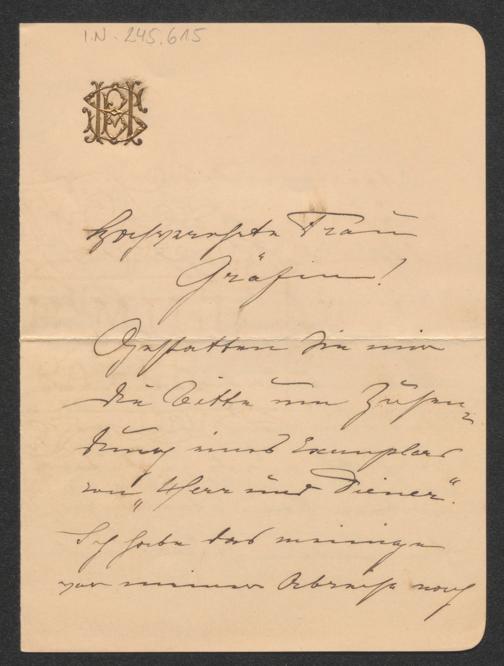 I.N. 245.615
Hochverehrte Frau
Gräfin!
Gestatten Sie mir
die Bitte um Zusen-
dung eines Exemplars
von „Herr und Diener“.
Ich habe das meinige
vor meiner Abreise nach